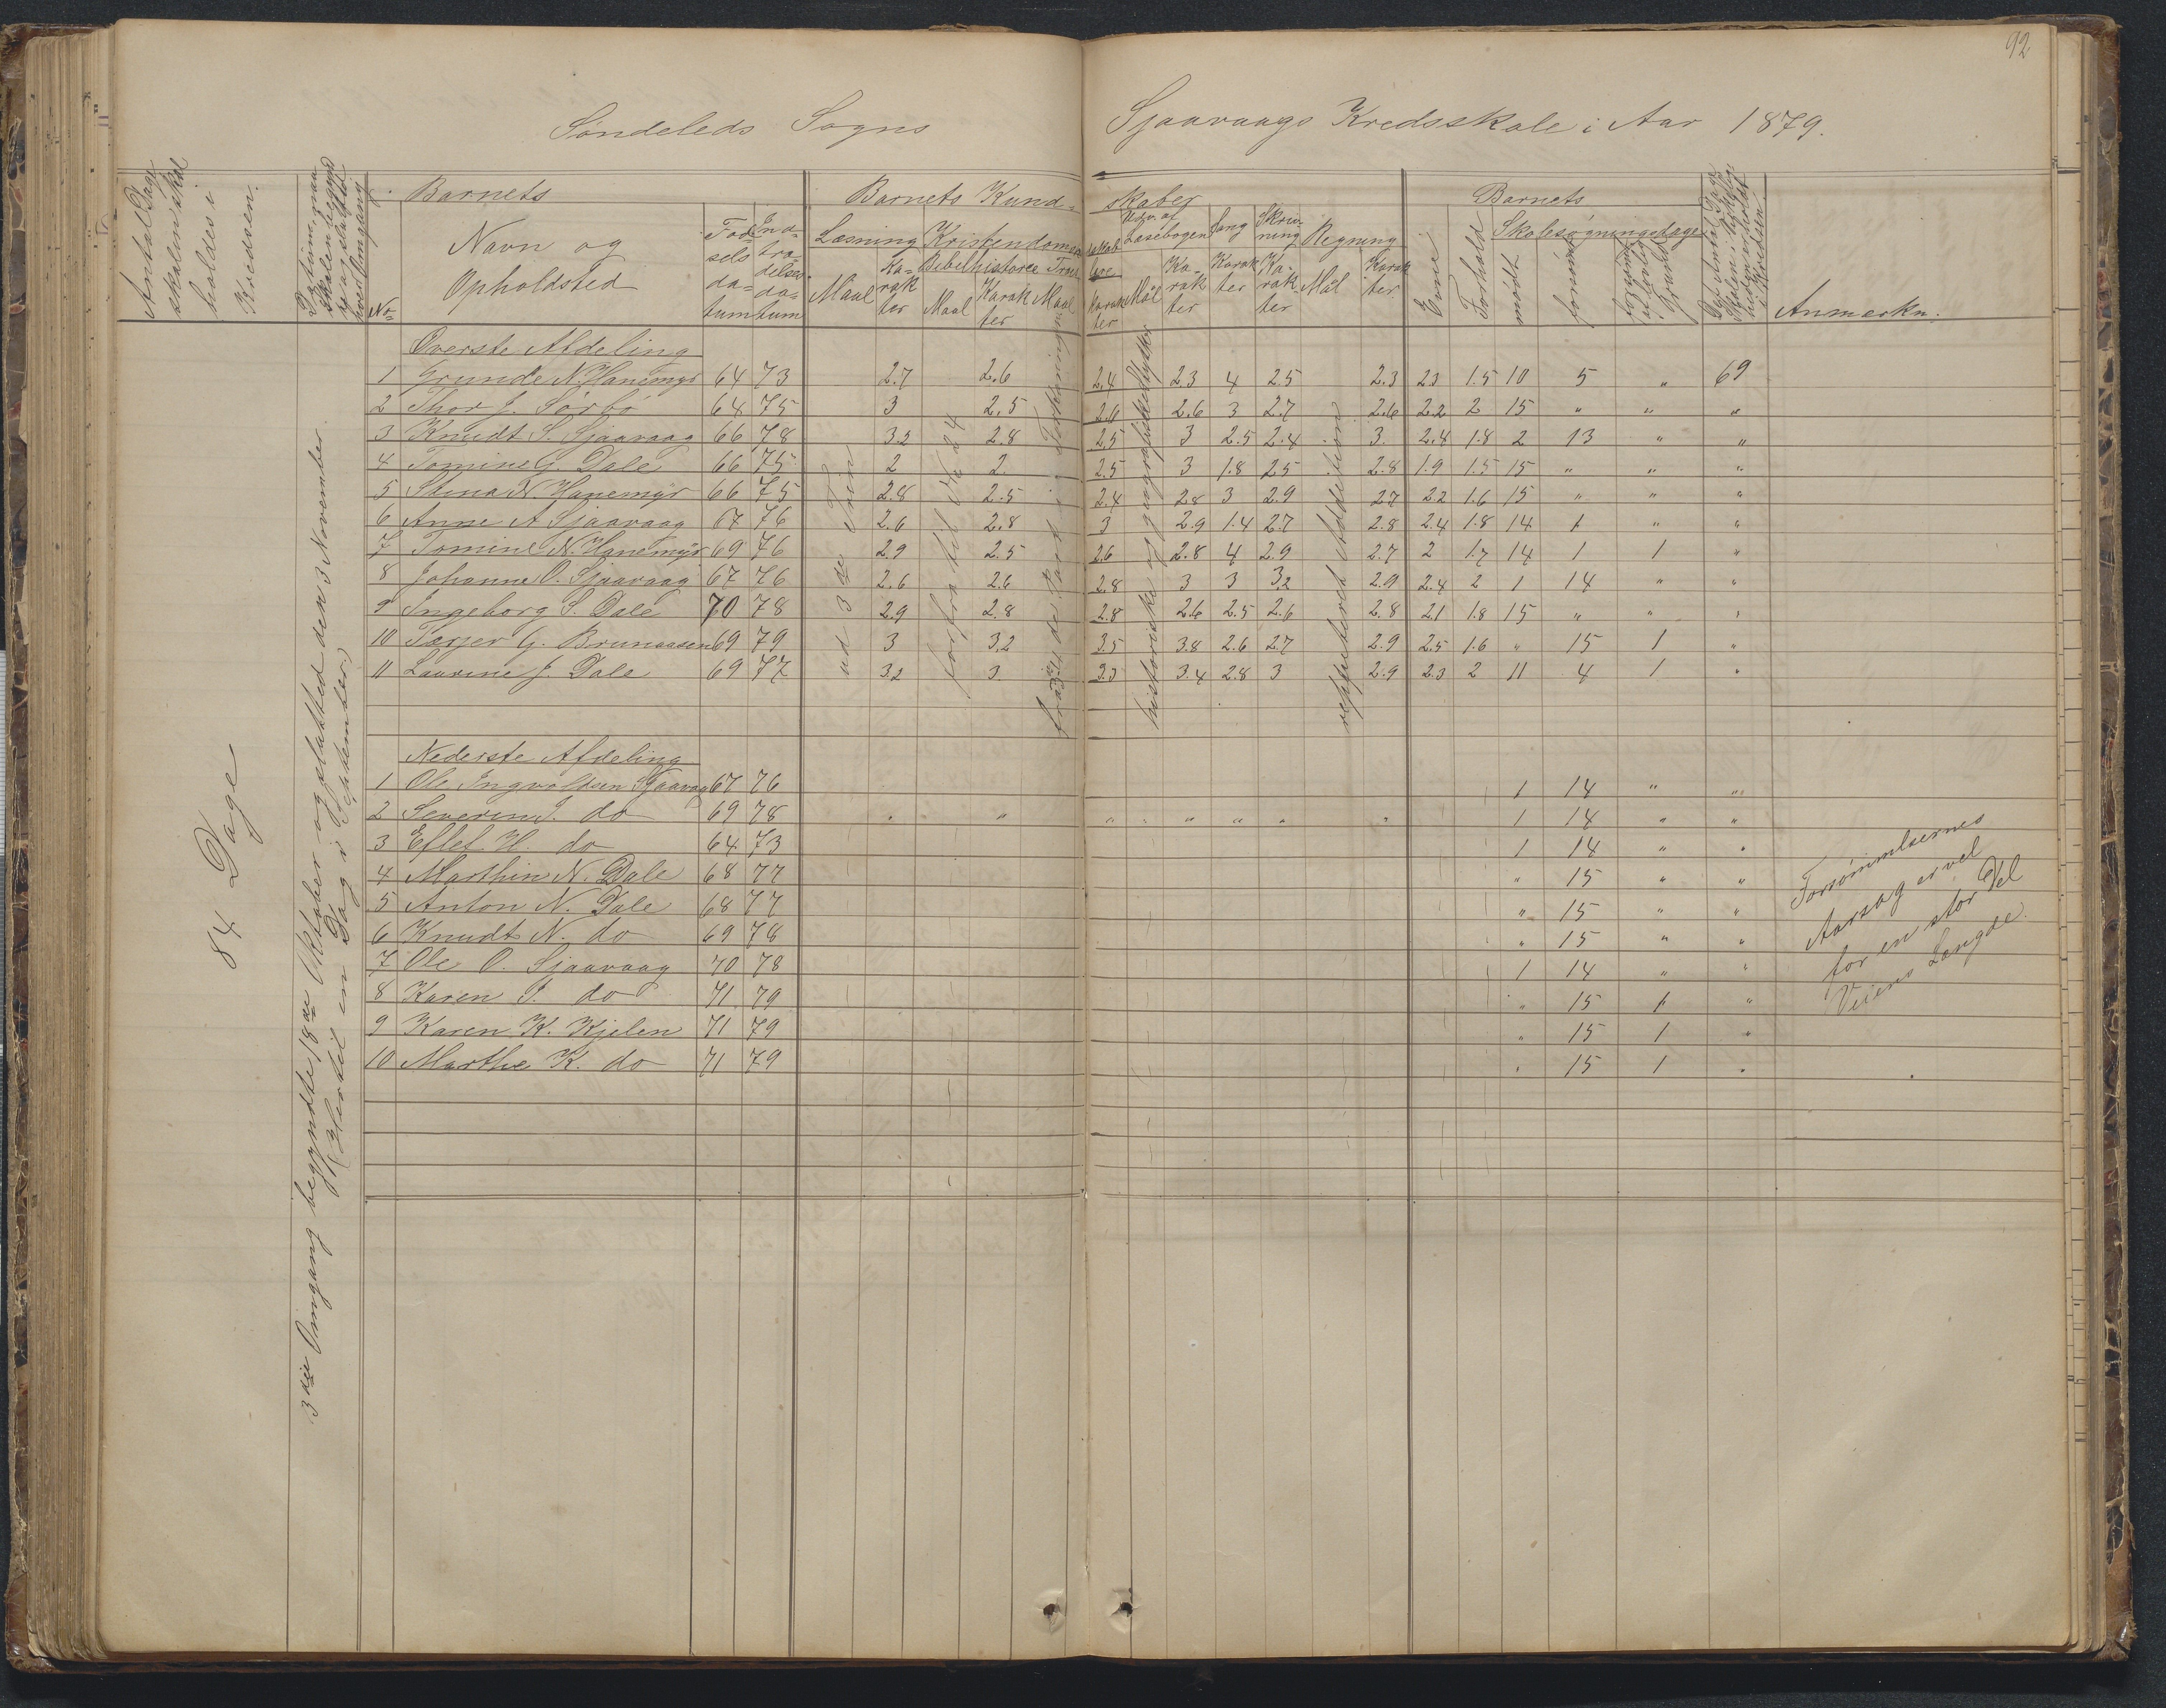 92
Söndeleds Sogns Sjaavaags Kredsskole i Aar 1879.
Antal Dage skolen skal holdes i Kredsen.
Barnets
No
Navn og Opholdsted
Födselsdatum
Indtrædelsesdatum
Barnets Kundskaber
Læsning
Maal
Karakter
Kristendomskundskab
Bibelhistorie
Maal
Karakter
Maal
Karakter
Udv. af Læsebogen
Mål
Karakter
Sang
Karakter
Skrivning
Karakter
Regning
Mål
Karakter
Barnets
Evne
Forhold
Skolesögningsdage
mödt
forsömt
Anmærkn.
84 Dage
3die Omgang begyndte 18de Oktober og slutted den 3 November
(Hertil en Dag i September)
ud 3de Trin
forfra til No 24
historiske og geografiske Stykker
reppeteret Addition
Överste Afdeling
1 Grunde N. Hanemyr 64 73 2.7 2.6 2.4 2.3 4 2.5 2.3 2.3 1.5 10 5 " 69
2 Thor J. Sörbö 64 75 3 2.5 2.6 2.6 3 2.7 2.6 2.2 2 15 " " "
3 Knudt S. Sjaavaag 66 78 3.2 2.8 2.5 3 2.5 2.4 3. 2.4 1.8 2 13 " "
4 Tomine G. Dale 66 75 2 2. 2.5 3 1.8 2.5 2.8 1.9 1.5 15 " " "
5 Stina N. Hanemyr 66 75 2.8 2.5 2.4 2.8 3 2.9 2.7 2.2 1.6 15 " " "
6 Anne A Sjaavaag 67 76 2.6 2.8 3 2.9 1.4 2.7 2.8 2.4 1.8 14 1 " "
7 Tomine N. Hanemyr 69 76 2.9 2.5 2.6 2.8 4 2.9 2.7 2 1.7 14 1 1 "
8 Johanne O. Sjaavaag 67 76 2.6 2.6 2.8 3 3 3.2 2.9 2.4 2 1 14 " "
9 Ingeborg S. Dale 70 78 2.9 2.8 2.8 2.6 2.5 2.6 2.8 2.1 1.8 15 " " "
10 Tarjer G. Brunaasen 69 79 3 3.2 3.5 3.8 2.6 2.7 2.9 2.5 1.6 " 15 1 "
11 Laurine J. Dale 69 77 3.2 3 3.3 3.4 2.8 3 2.9 2.3 2 11 4 1 "
Nederste Afdeling
1 Ole Ingvoldsen Sjaavag 67 76 1 14 " "
2 Severin J. do 69 78 " " " " " " " 1 14 " "
3 Eflef H. do 64 73 1 14 " "
4 Marthin N. Dale 68 77 " 15 " "
5 Anton N. Dale 68 77 " 15 " "
6 Knudt N. do 69 78 " 15 " "
7 Ole O. Sjaavaag 70 78 1 14 " "
8 Karen J. do 71 79 " 15 1 "
9 Karen K. Kjelen 71 79 " 15 1 "
10 Marthe K. do 71 79 " 15 1 "
Forsömmelsernes
Aarsag er vel
for en stor Del
Veiens Længde.